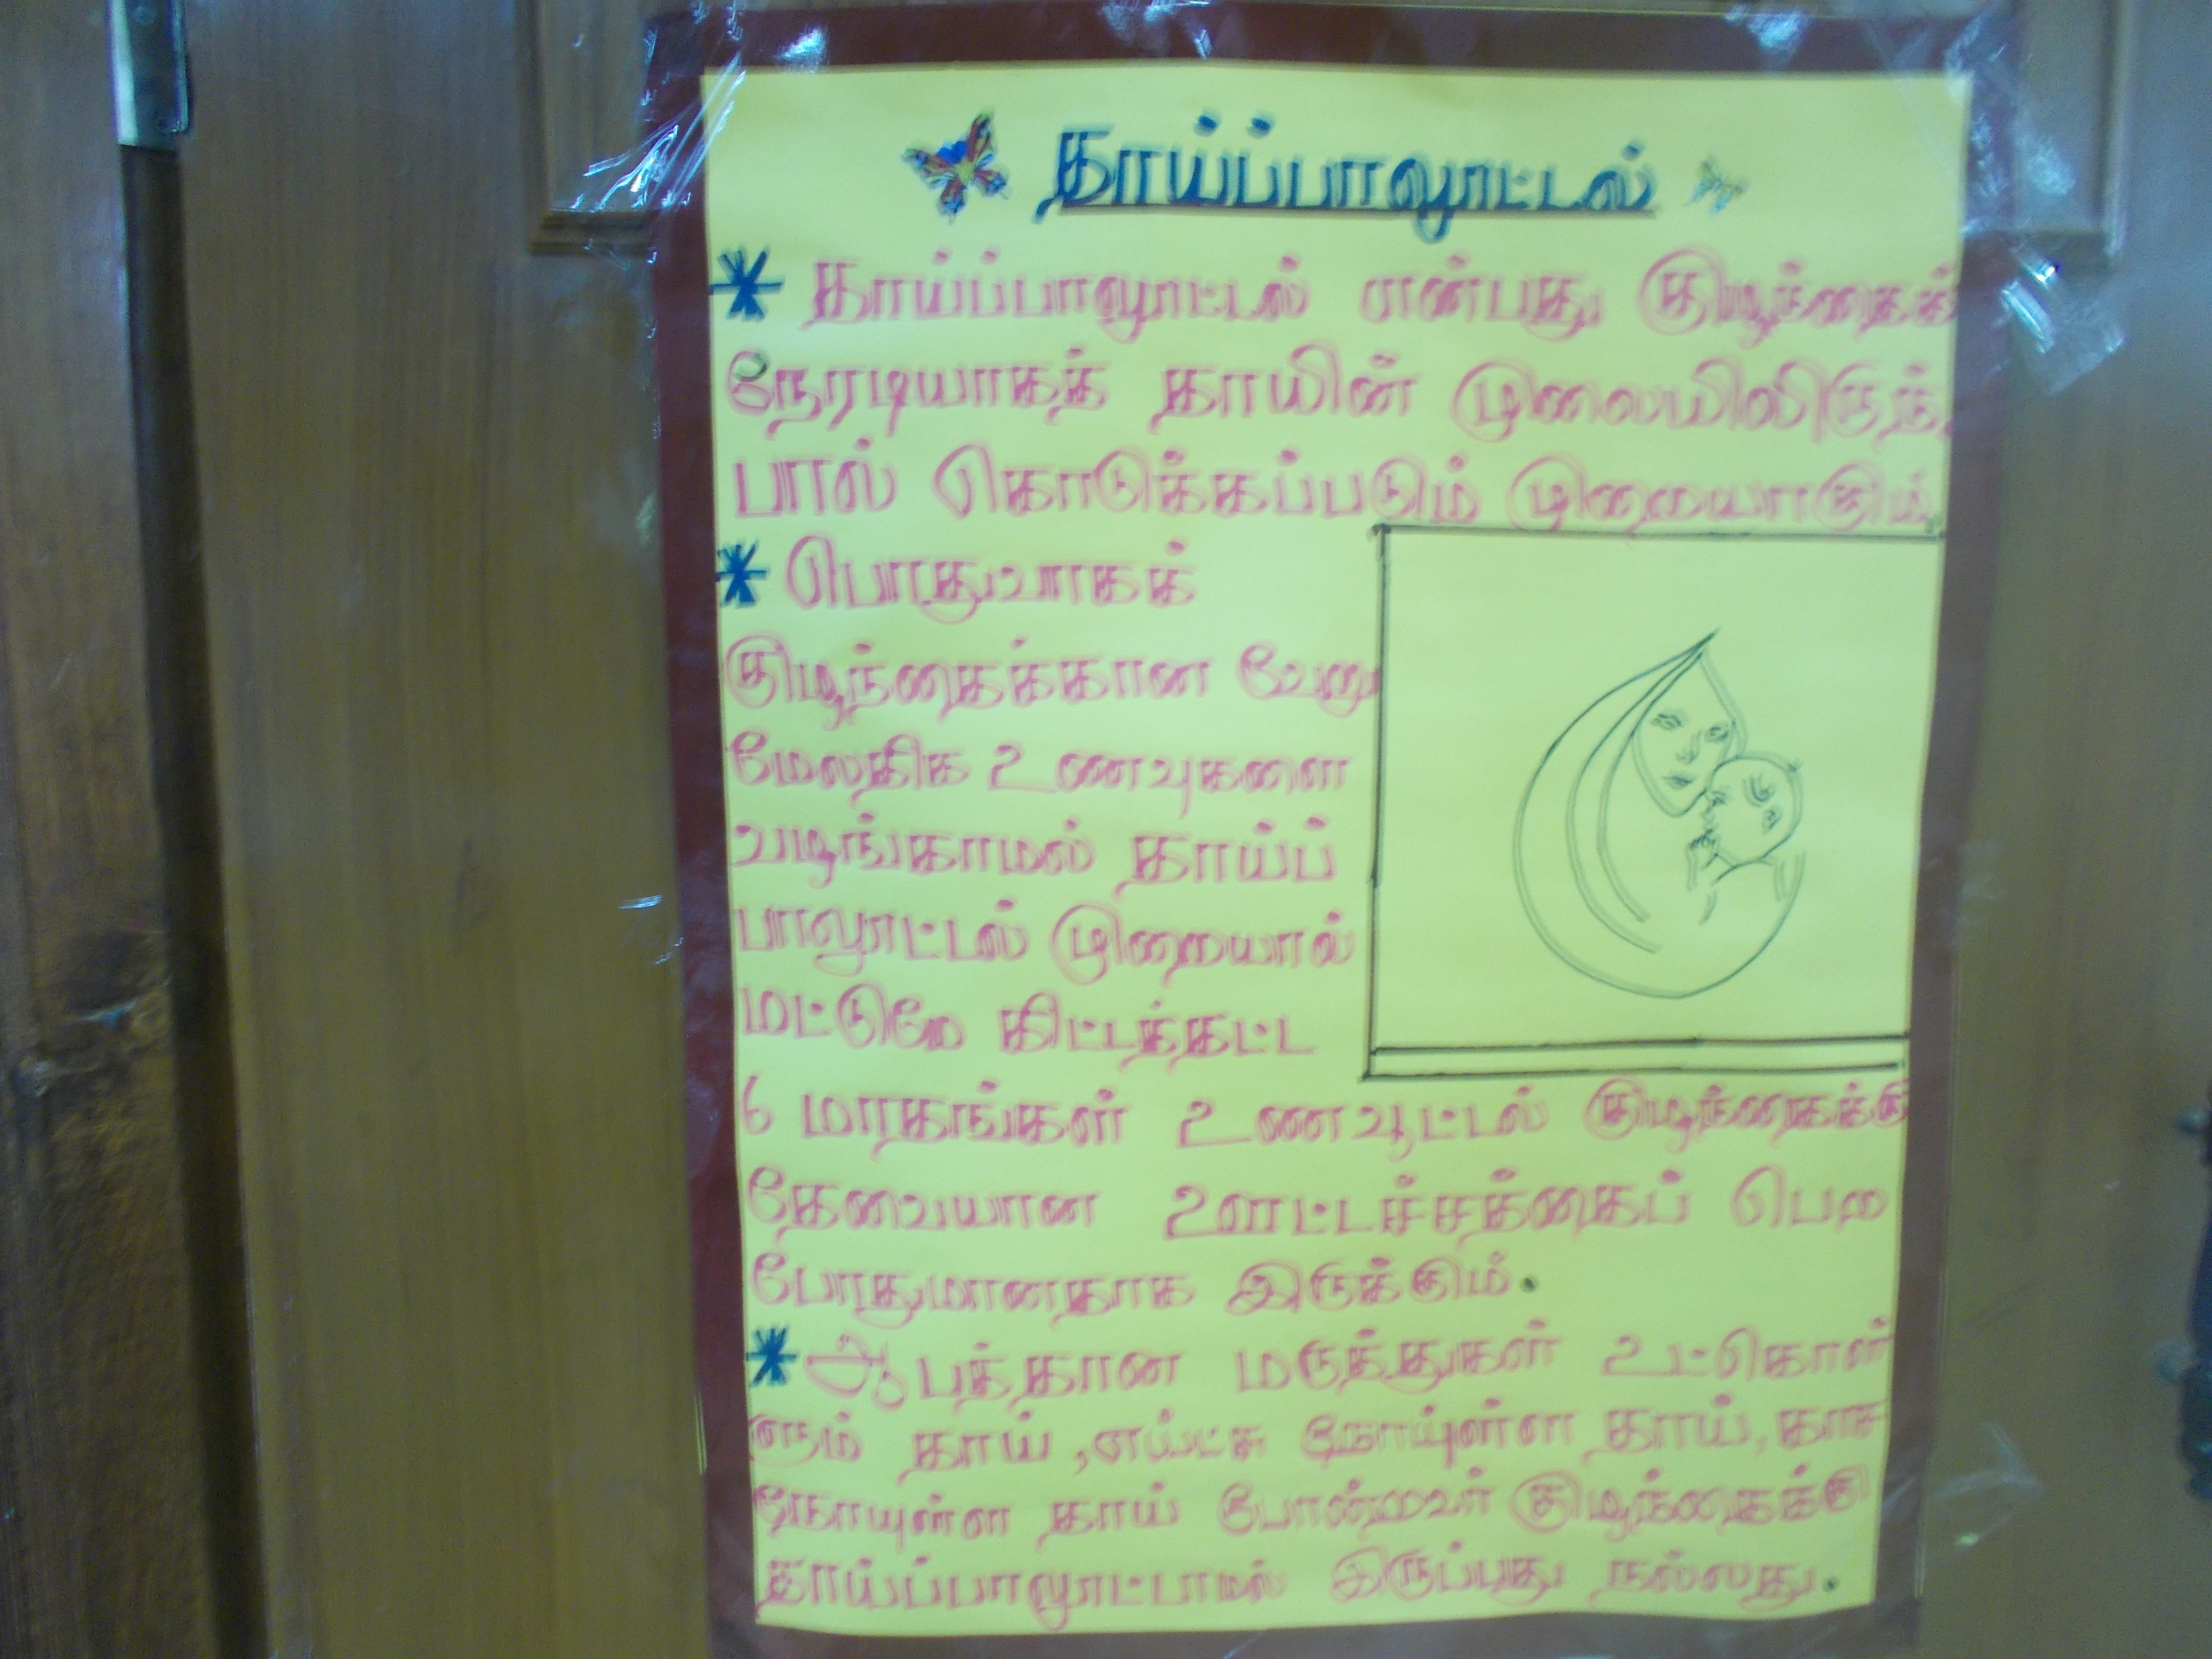 தாய்ப்பாலூட்டல்
* தாய்ப்பாலூட்டல் என்பது குழந்தைக்
நேரடியாகத் தாயின் முலையிலிருந்
பால் கொடுக்கப்படும் முறையாகும்.
* பொதுவாகக்
குழந்தைக்கான வேறு
மேலதிக உணவுகளை
வழங்காமல் தாய்ப்
பாலூட்டல் முறையால்
மட்டுமே கிட்டத்தட்ட
6 மாதங்கள் உணவூட்டல் குழந்தைக்கு
தேவையான ஊட்டச்சத்தைப் பெற
போதுமானதாக இருக்கும்.
* ஆபத்தான மருத்துகள் உட்கொள்
ளும் தாய், எய்ட்சு நோயுள்ள தாய், காச
நோயுள்ள தாய் போன்றவர் குழந்தைக்கு
தாய்ப்பாலூட்டாமல் இருப்பது நல்லது.